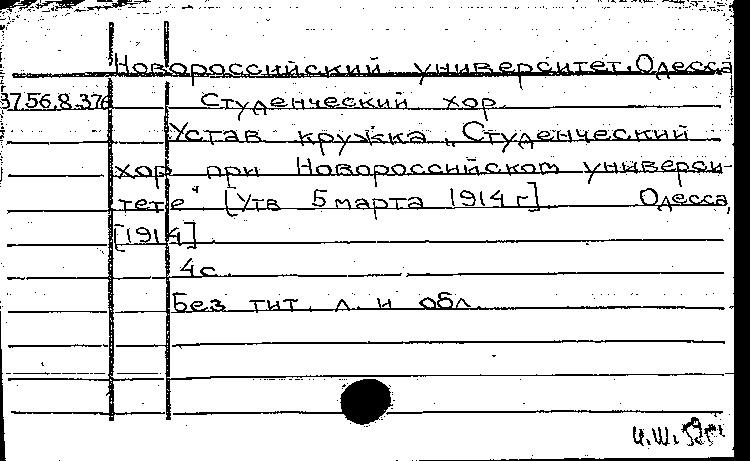 Новороссийский университет. Одесса
37.56.8.376 Студенческий хор.
Устав кружка „Студенческий
хор при Новороссийском универси-
тете“ [Утв 5 марта 1914 г]. Одесса,
[1914].
4с.
Без тит. л. и обл.